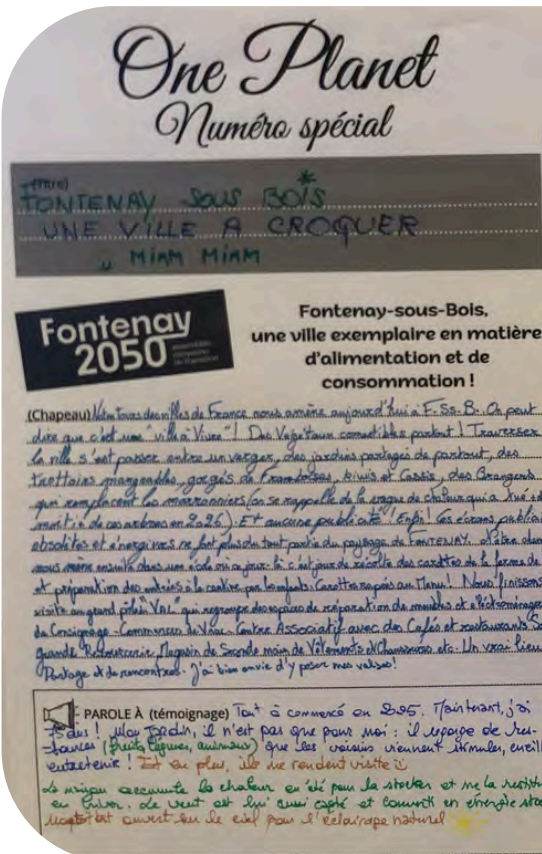 One Planet
Numéro spécial
(titre)
FONTENAY SOUS BOIS
UNE VILLE A CROQUER
MIAM MIAM
Fontenay
2050
Fontenay-sous-Bois,
une ville exemplaire en matière
d'alimentation et de
consommation !
(Chapeau) des villes de France nous amène aujourd'hui à F.Ss.B. On peut
dire que c'est une "ville à Vivre" ! Des Végétaux comestibles partout ! Traverser
la ville s'est passer entre un verger, des jardins partagés de partout, des
trottoirs mangeables, gorgés de Framboises, kiwis et Cassis, des Orangers
qui remplacent les marronniers (on se rappelle de la vague de chaleur qui a tué la
moitié de ces arbres en 2025). Et aucune publicité ! Enfin ! Ces écrans
et énergivores ne font plus du tout partie du paysage de FONTENAY.
ensuite dans une école où ce jour là c'est jour de récolte des carottes de la ferme
et préparation des entrées à la cantine par les enfants. Carottes rapées au Menu ! Nous finissons
visite au grand pôle "VAL" qui regroupe des espaces de réparation de meubles et électroménager
de Consignage - Commerces de Vrac - Centre Associatif avec des Cafés et restaurants
grande Ressourcerie, Magasin de Seconde main de Vêtements et Chaussures etc. Un vrai lieu
Partage et de rencontres. J'ai bien envie d'y poser mes valises !
PAROLE À (témoignage) Tout à commencé en 2025. Maintenant, j'ai
75 ans ! Mon Jardin, il n'est pas que pour moi : il
(fruits, légumes, animaux) que les voisins viennent
entretenir ! Et en plus, ils me rendent visite
accumule la chaleur en été pour la stocker et me la
en hiver. Le vent est lui aussi capté et converti en énergie
ouvert sur le ciel pour l'éclairage naturel